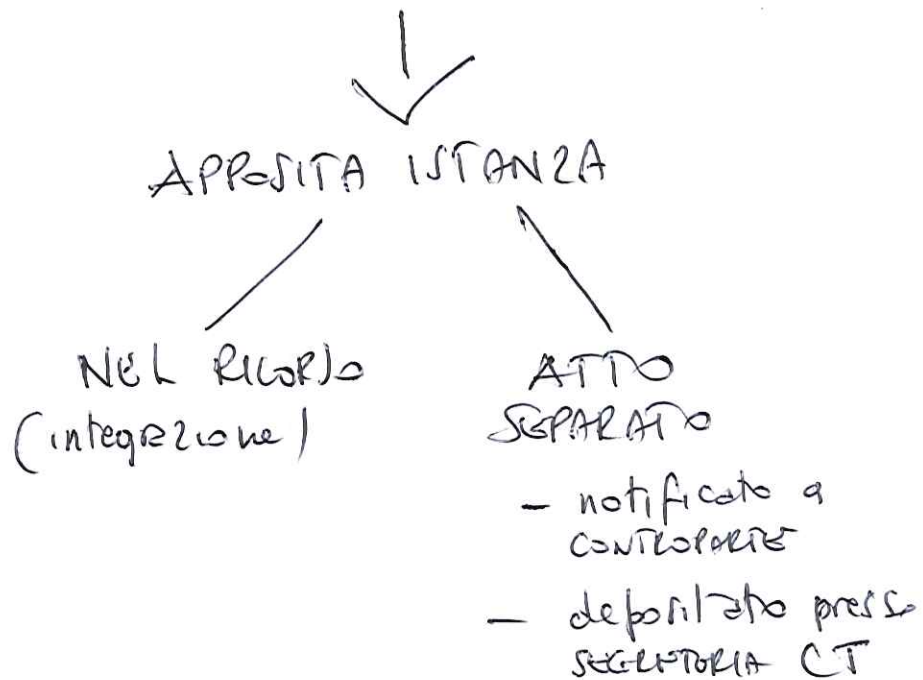 APPOSITA ISTANZA
NEL RICORSO
(integrazione)
ATTO
SEPARATO
- notificato a
CONTROPARTE
- depositato presso
SEGRETERIA CT